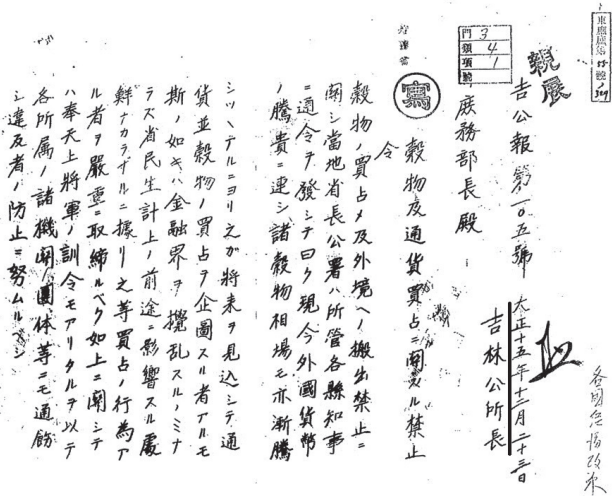 親展
吉公報第一〇五號
大正十五年十二月二十三日
吉林公所長
庶務部長殿
門 3
類 4
項 1
號
寫
穀物及通貨買占ニ関スル禁止
令
穀物ノ買占メ及外境ヘノ搬出禁止ニ
関シ当地省長公署ハ所管各縣知事
ニ通令ヲ發シテ曰ク現今外國貨幣
ノ騰貴ニ連シ諸穀物相場モ亦漸騰
シツヽアルニヨリ之が将来ヲ見込シテ通
貨並穀物ノ買占ヲ企圖スル者アルモ
斯ノ如キハ金融界ヲ攪乱スルノミナ
ラス省民生計上ノ前途ニ影響スル處
鮮ナカラザルニ據リ之等買占ノ行為ア
ル者ヲ嚴重ニ取締ルベク如上ニ関シテ
ハ奉天上將軍ノ訓令モアリタルヲ以テ
各所属ノ諸機関團体等ニモ通飭
シ違反者ノ防止ニ努ムルベシ